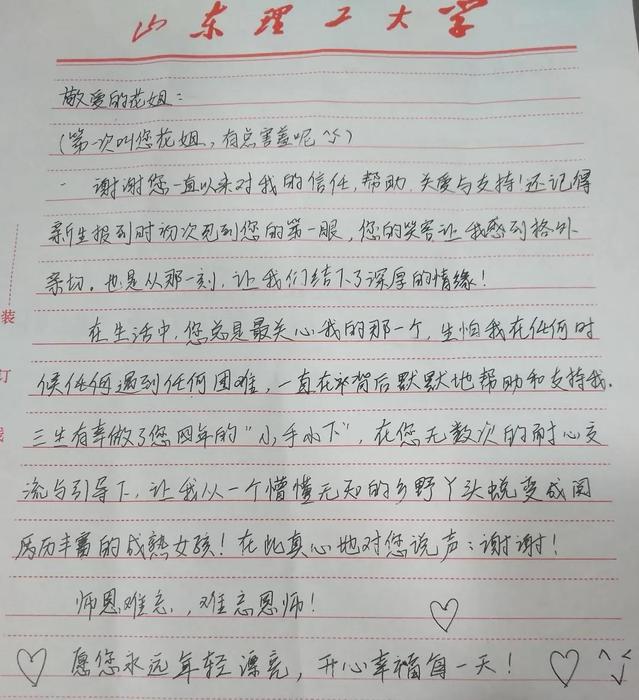 山东理工大学
敬爱的花姐：
（第一次叫您花姐，有点害羞呢 ^_^）
谢谢您一直以来对我的信任，帮助，关爱与支持！还记得
新生报到时初次见到您的第一眼，您的笑容让我感到格外
亲切。也是从那一刻，让我们结下了深厚的情缘！
装
在生活中，您总是最关心我的那一个，生怕我在任何时
订
候任何遇到任何困难，一直在背后默默地帮助和支持我。
三生有幸做了您四年的“小手小下”，在您无数次的耐心交
线
流与引导下，让我从一个懵懂无知的乡野丫头蜕变成阅
历丰富的成熟女孩！在此真心地对您说声：谢谢！
师恩难忘，难忘恩师！
愿您永远年轻漂亮，开心幸福每一天！